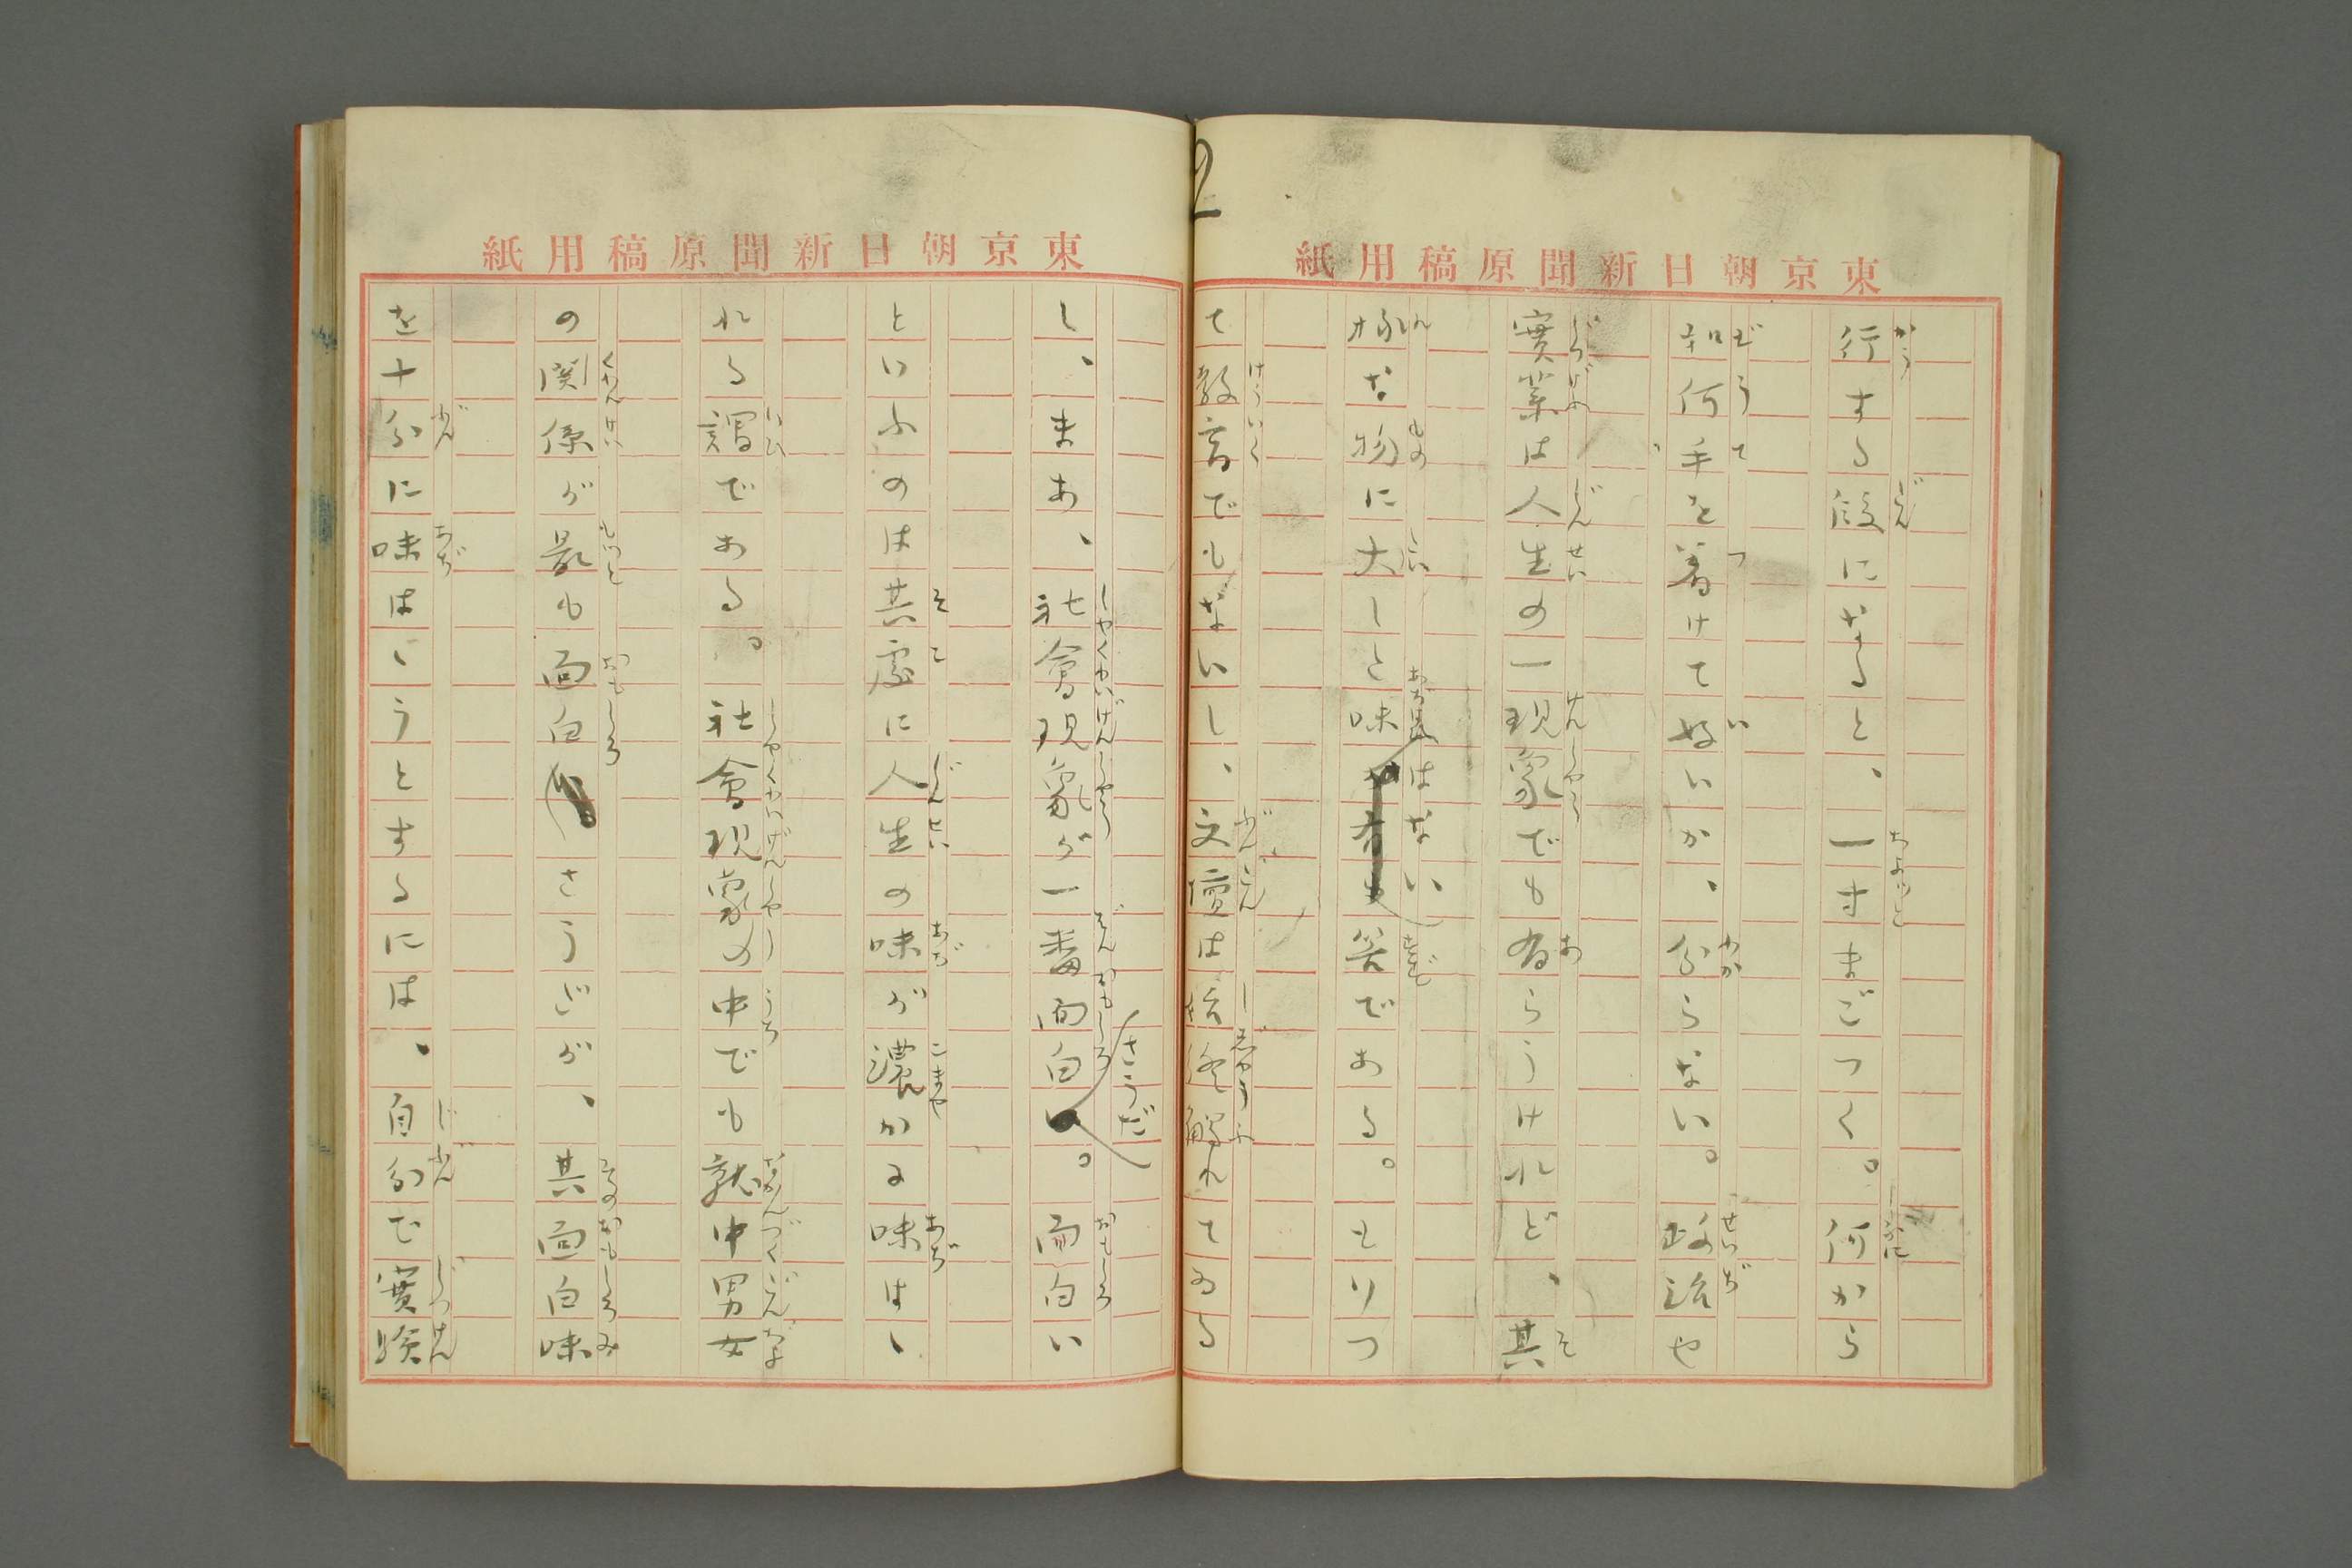 東京朝日新聞原稿用紙
行する段になると、一寸まごつく。何から
如何手を着けて好いか、分らない。政治や
實業は人生の一現象でも有らうけれど、其
様な物に大した味はない筈である。といつ
て教育でもないし、文壇は始終觸れてゐる
2
東京朝日新聞原稿用紙
し、まあ、社會現象が一番面白さうだ。面白い
といふのは其處に人生の味が濃かに味はゝ
れる謂である。社會現象の中でも就中男女
の関係が最も面白さうだが、其面白味
を十分に味はゝうとするには、自分で實験